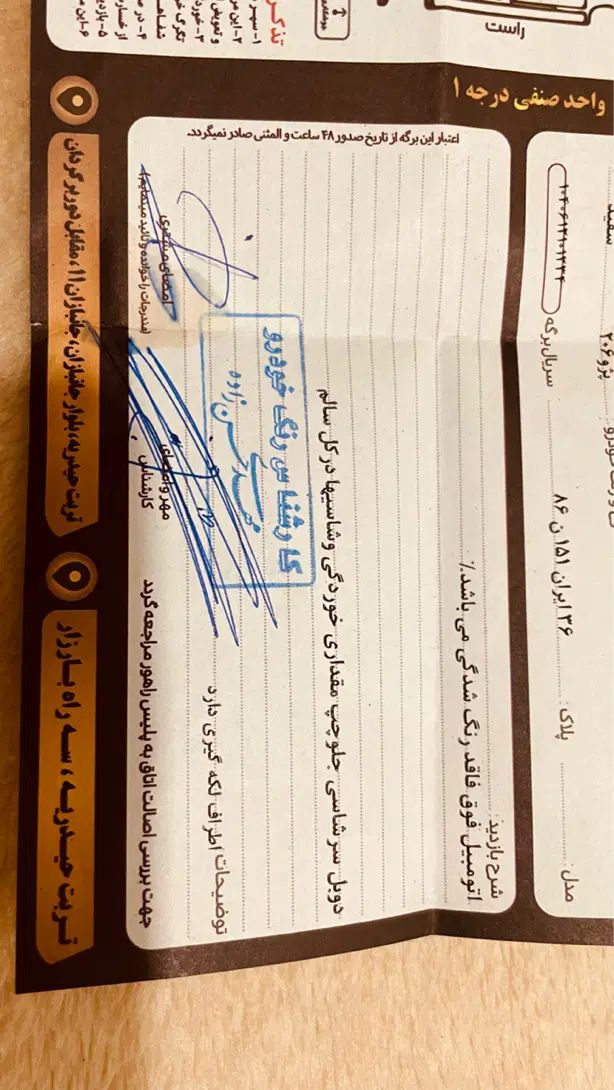 راست
تذکر
واحد صنفی درجه ۱
سفید
پژو ۲۰۶
سریال برگه
۱۰۴۰۶۱۲۱۰۱۲۳۴
پلاک:
۳۶ ایران ۱۵۱ ن ۸۶
مدل:
اعتبار این برگه از تاریخ صدور ۴۸ ساعت و المثنی صادر نمیگردد.
شرح بازدید:
اتومبیل فوق فاقد رنگ شدگی می باشد٪
دوبل سرشاسی جلوچپ مقداری خوردگی وشاسیها درکل سالم
توضیحات اطراف لکه گیری دارد
کارشناس رنگ خودرو
مهر و امضای
کارشناس
امضای مشتری
(مندرجات را خوانده و تائید مینمایم)
جهت بررسی اصالت اتاق به پلیس راهور مراجعه گردد
تربت حیدریه، سه راه بارزار
تربت حیدریه، بلوار جانبازان، جانبازان ۱۱، مقابل دوربرگردان